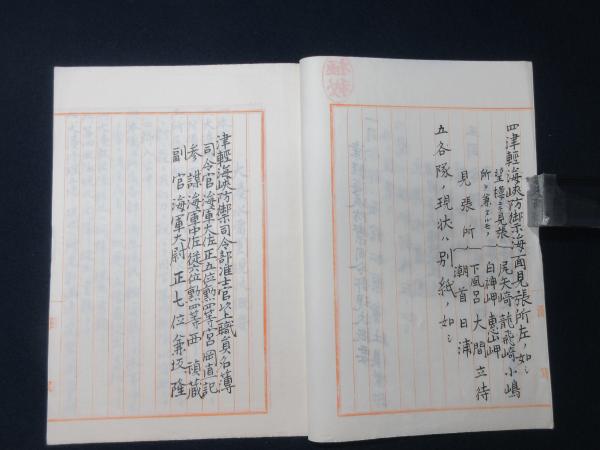 極秘
四津輕海峽防禦海面見張所左ノ如シ
望樓ニ見張所ヲ兼ヌルモノ
尾矢崎 龍飛崎 小嶋
白神岬 惠山岬
見張所
下風呂 大間 立待
潮首 日浦
五各隊ノ現状ハ別紙ノ如シ
津輕海峽防禦司令部准士官以上職員名簿
司令官海軍大佐正五位勲四等宮岡直記
参謀海軍中佐従六位勲四等西禎蔵
副官海軍大尉正七位兼坂隆